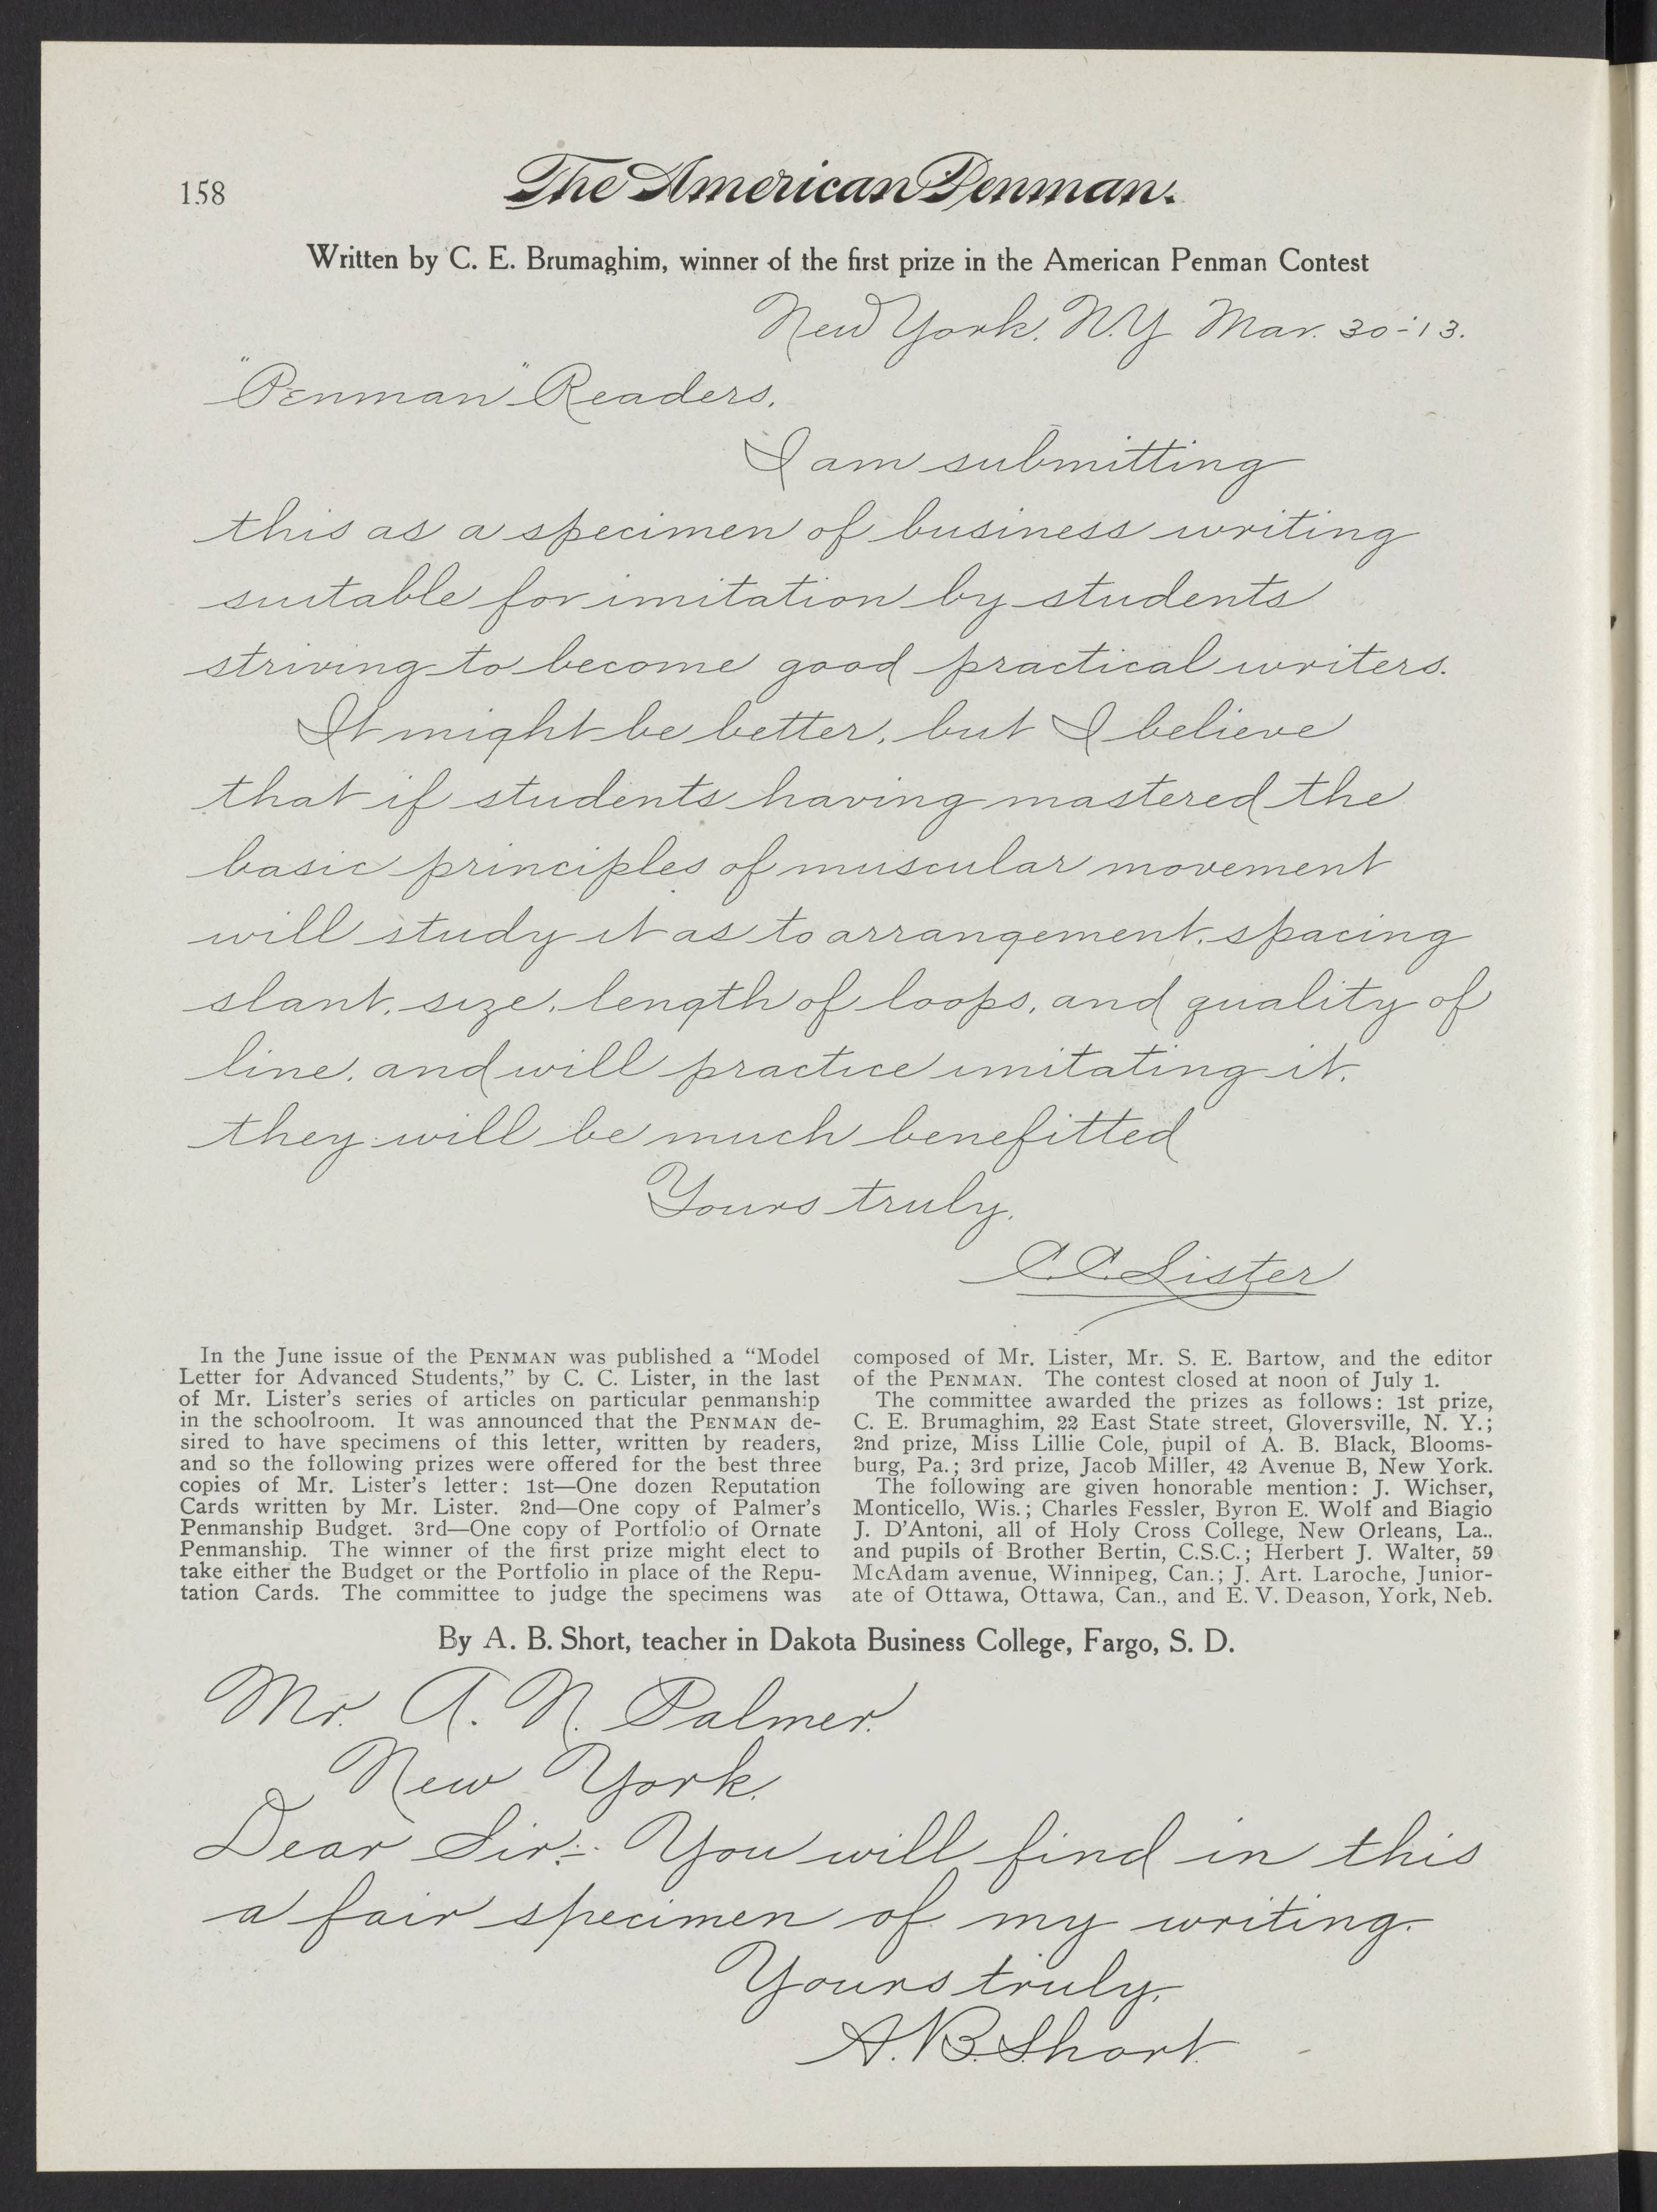 158
The American Penman.
Written by C. E. Brumaghim, winner of the first prize in the American Penman Contest
New York, N.Y. Mar. 30-'13.
"Penman" Readers,
I am submitting
this as a specimen of business writing
suitable for imitation by students
striving to become good practical writers.
It might be better, but I believe
that if students having mastered the
basic principles of muscular movement
will study it as to arrangement, spacing
slant, size, length of loops, and quality of
line, and will practice imitating it,
they will be much benefitted
Yours truly,
C.C. Lister
In the June issue of the PENMAN was published a “Model
Letter for Advanced Students,” by C. C. Lister, in the last
of Mr. Lister’s series of articles on particular penmanship
in the schoolroom. It was announced that the PENMAN de-
sired to have specimens of this letter, written by readers,
and so the following prizes were offered for the best three
copies of Mr. Lister’s letter: 1st—One dozen Reputation
Cards written by Mr. Lister. 2nd—One copy of Palmer’s
Penmanship Budget. 3rd—One copy of Portfolio of Ornate
Penmanship. The winner of the first prize might elect to
take either the Budget or the Portfolio in place of the Repu-
tation Cards. The committee to judge the specimens was
composed of Mr. Lister, Mr. S. E. Bartow, and the editor
of the PENMAN. The contest closed at noon of July 1.
The committee awarded the prizes as follows: 1st prize,
C. E. Brumaghim, 22 East State street, Gloversville, N. Y.;
2nd prize, Miss Lillie Cole, pupil of A. B. Black, Blooms-
burg, Pa.; 3rd prize, Jacob Miller, 42 Avenue B, New York.
The following are given honorable mention: J. Wichser,
Monticello, Wis.; Charles Fessler, Byron E. Wolf and Biagio
J. D’Antoni, all of Holy Cross College, New Orleans, La..
and pupils of Brother Bertin, C.S.C.; Herbert J. Walter, 59
McAdam avenue, Winnipeg, Can.; J. Art. Laroche, Junior-
ate of Ottawa, Ottawa, Can., and E. V. Deason, York, Neb.
By A. B. Short, teacher in Dakota Business College, Fargo, S. D.
Mr. A. N. Palmer.
New York.
Dear Sir:- You will find in this
a fair specimen of my writing.
Yours truly,
A. B. Short.